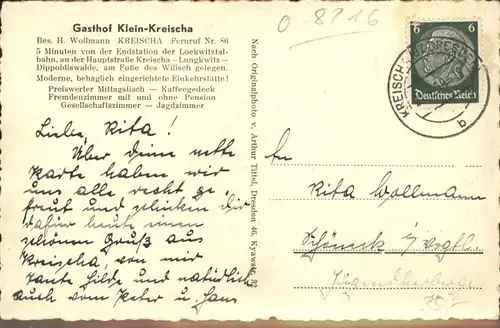 Gasthof Klein-Kreischa
Bes. H. Wollmann KREISCHA Fernruf Nr. 86
5 Minuten von der Endstation der Lockwitztal-
bahn, an der Hauptstraße Kreischa – Lungkwitz –
Dippoldiswalde, am Fuße des Wilisch gelegen.
Moderne, behaglich eingerichtete Einkehrstätte!
Preiswerter Mittagstisch — Kaffeegedeck
Fremdenzimmer mit und ohne Pension
Gesellschaftszimmer — Jagdzimmer
Liebe Rita!
Über deine nette
Karte haben wir
uns alle recht ge,
freut und schicken Dir
dafür heute einen
schönen Gruß aus
Kreischa, von mir
Tante Hilde und natürlich
auch vom Peter u. Hans
Nach Originalphoto v. Arthur Tittel, Dresden 46, Kyawstr. 32
0-8216
6 6
Deutsches Reich
KREISCHA DRESDEN
b
An
Rita Wollmann
Schöneck i/Vogtl.
Jugendherberge
357